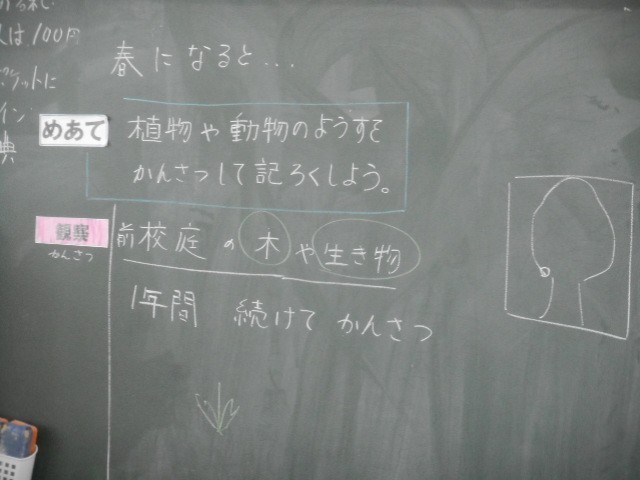 は100円
ケットに
イン
典
春になると…
めあて
植物や動物のようすを
かんさつして記ろくしよう。
観察
かんさつ
前校庭の木や生き物
1年間 続けて かんさつ